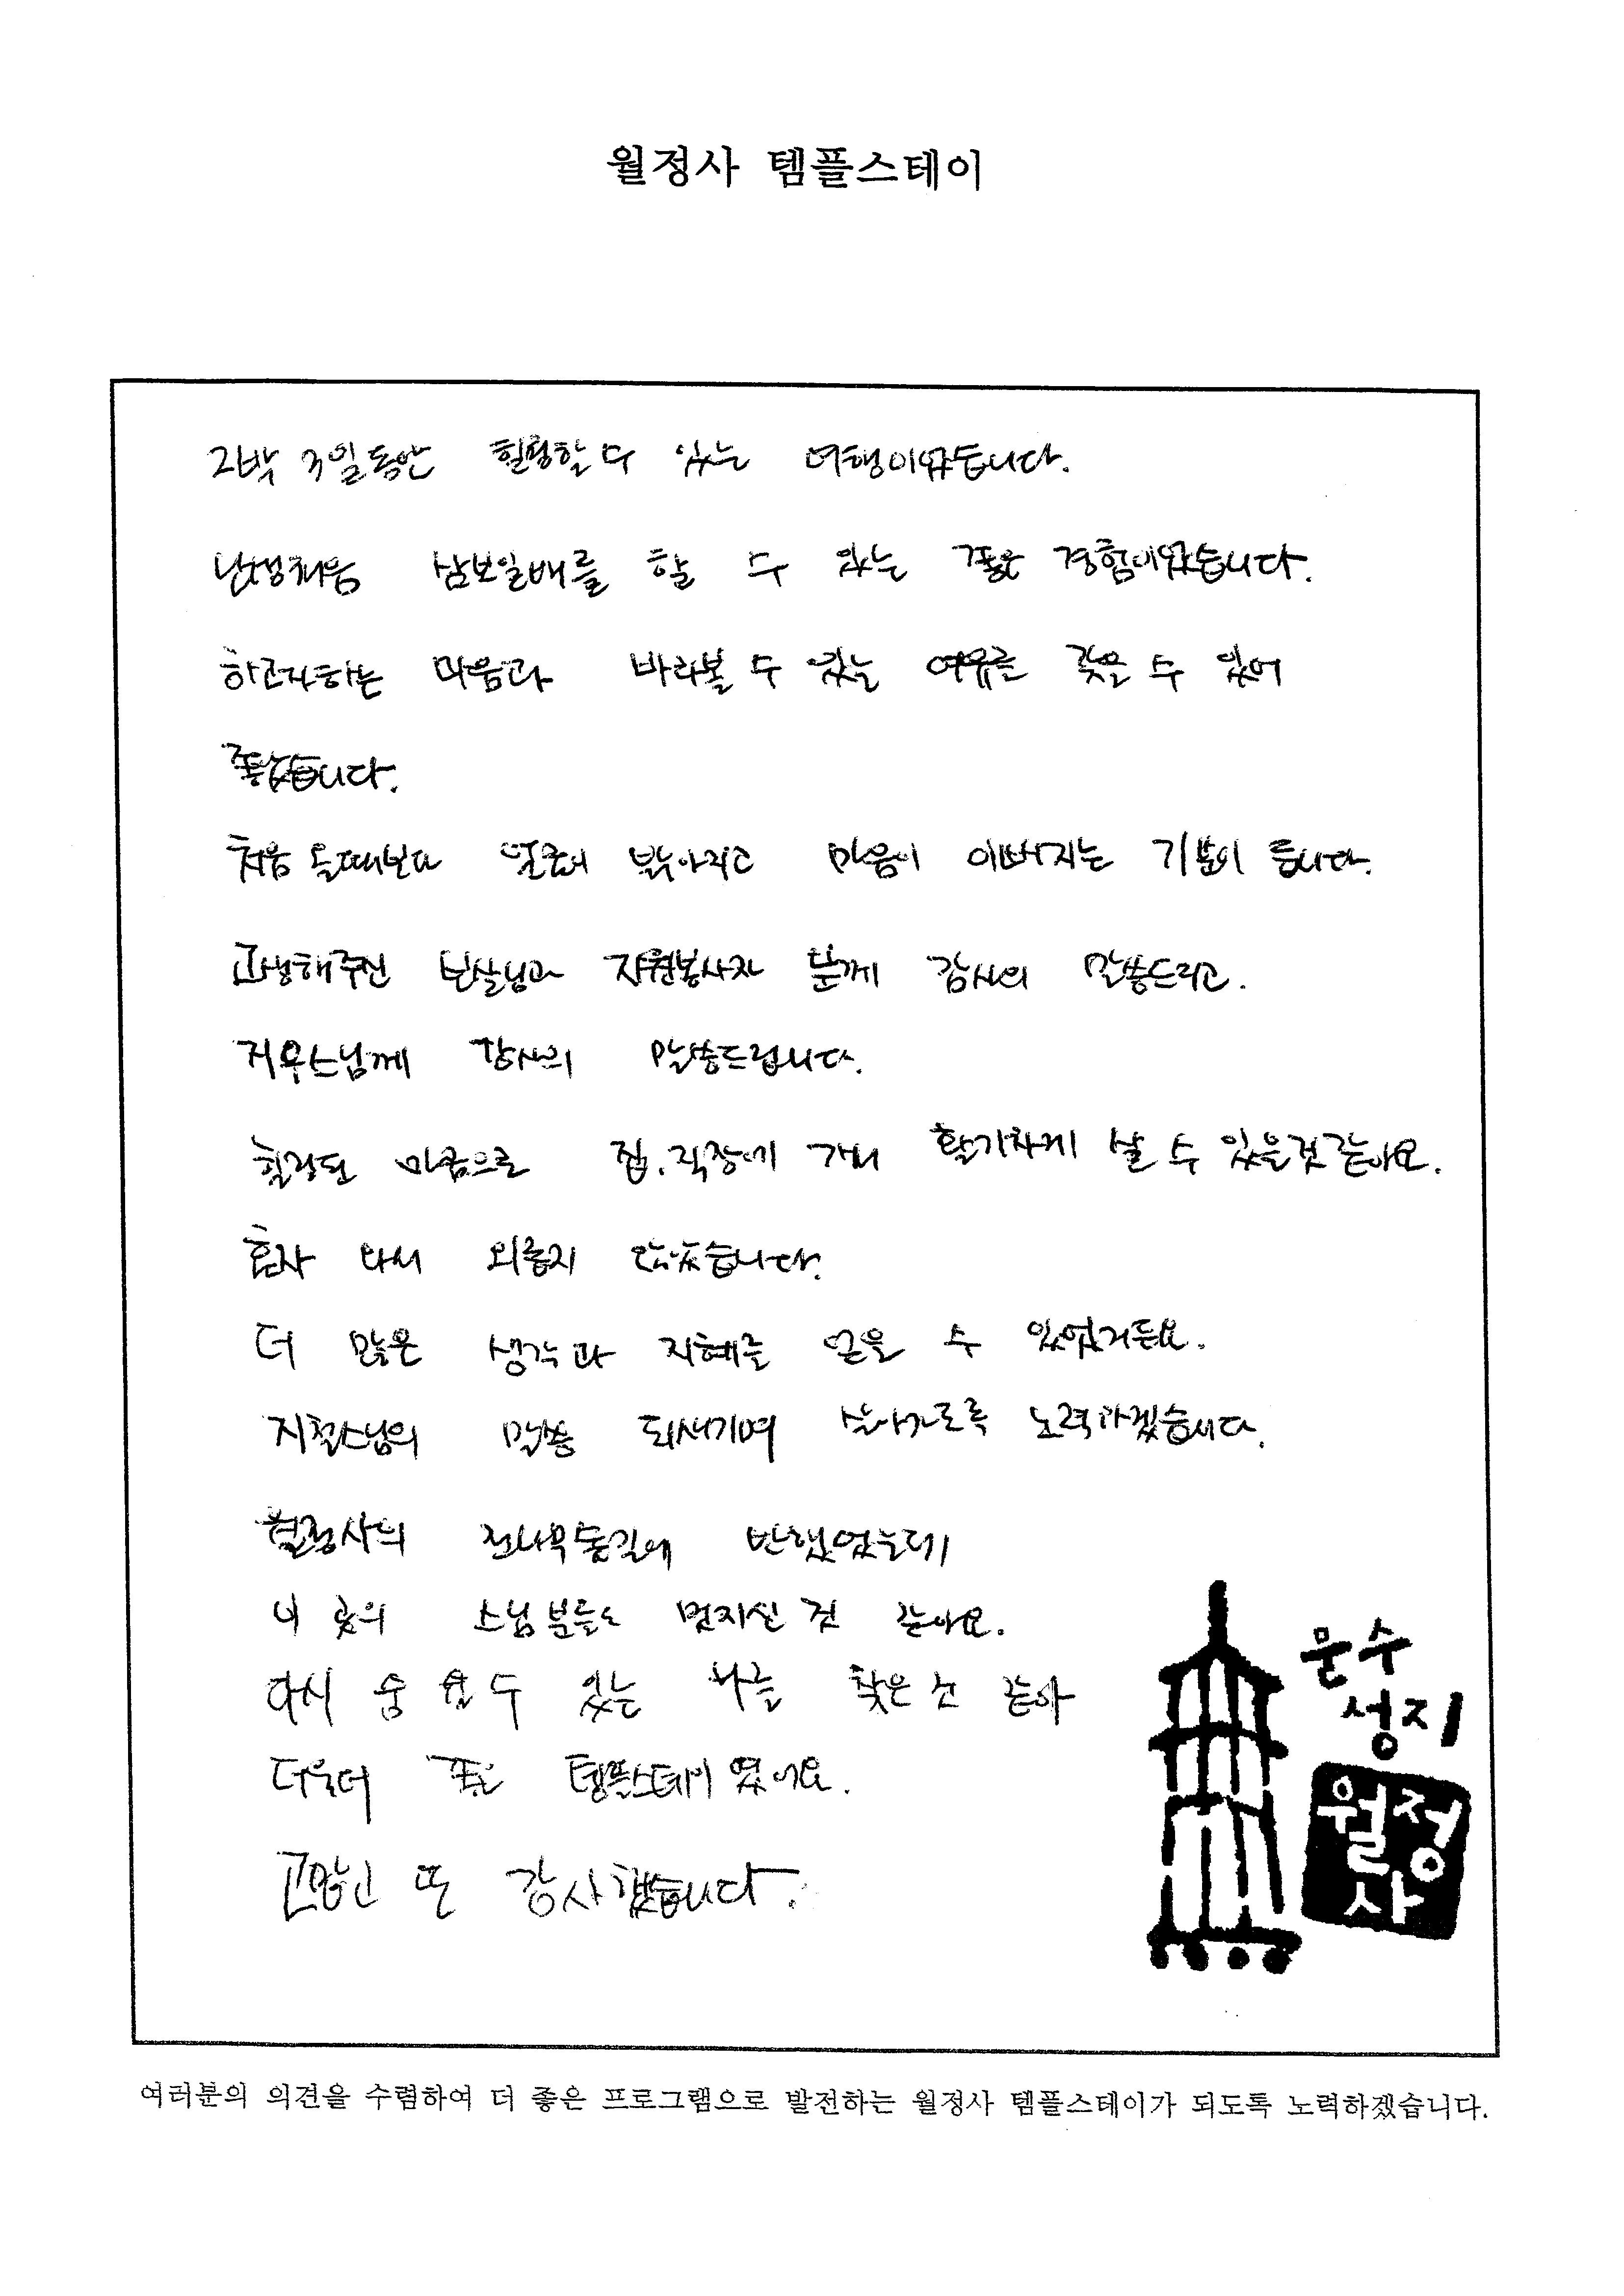 월정사 템플스테이
2박 3일동안 힐링할 수 있는 여행이였습니다.
난생처음 삼보일배를 할 수 있는 좋은 경험이였습니다.
하고자하는 마음과 바라볼 수 있는 여유를 갖을 수 있어
좋았습니다.
처음 올때보다 얼굴이 밝아지고 마음이 이뻐지는 기분이 듭니다.
고생해주신 보살님과 자원봉사자 분께 감사의 말씀드리고.
지우스님께 감사의 말씀드립니다.
힐링된 마음으로 집.직장에 가서 활기차게 살 수 있을것 같아요.
혼자 와서 외롭지 않았습니다.
더 많은 생각과 지혜를 얻을 수 있었거든요.
지철스님의 말씀 되새기며 살아가도록 노력하겠습니다.
월정사의 전나무숲길에 반했었는데
이 곳의 스님분들도 멋지신 것 같아요.
다시 숨 쉴 수 있는 나를 찾은 것 같아
더욱더 좋은 템플스테이였어요.
고맙고 또 감사했습니다.
문수
성지
월정
사
여러분의 의견을 수렴하여 더 좋은 프로그램으로 발전하는 월정사 템플스테이가 되도록 노력하겠습니다.